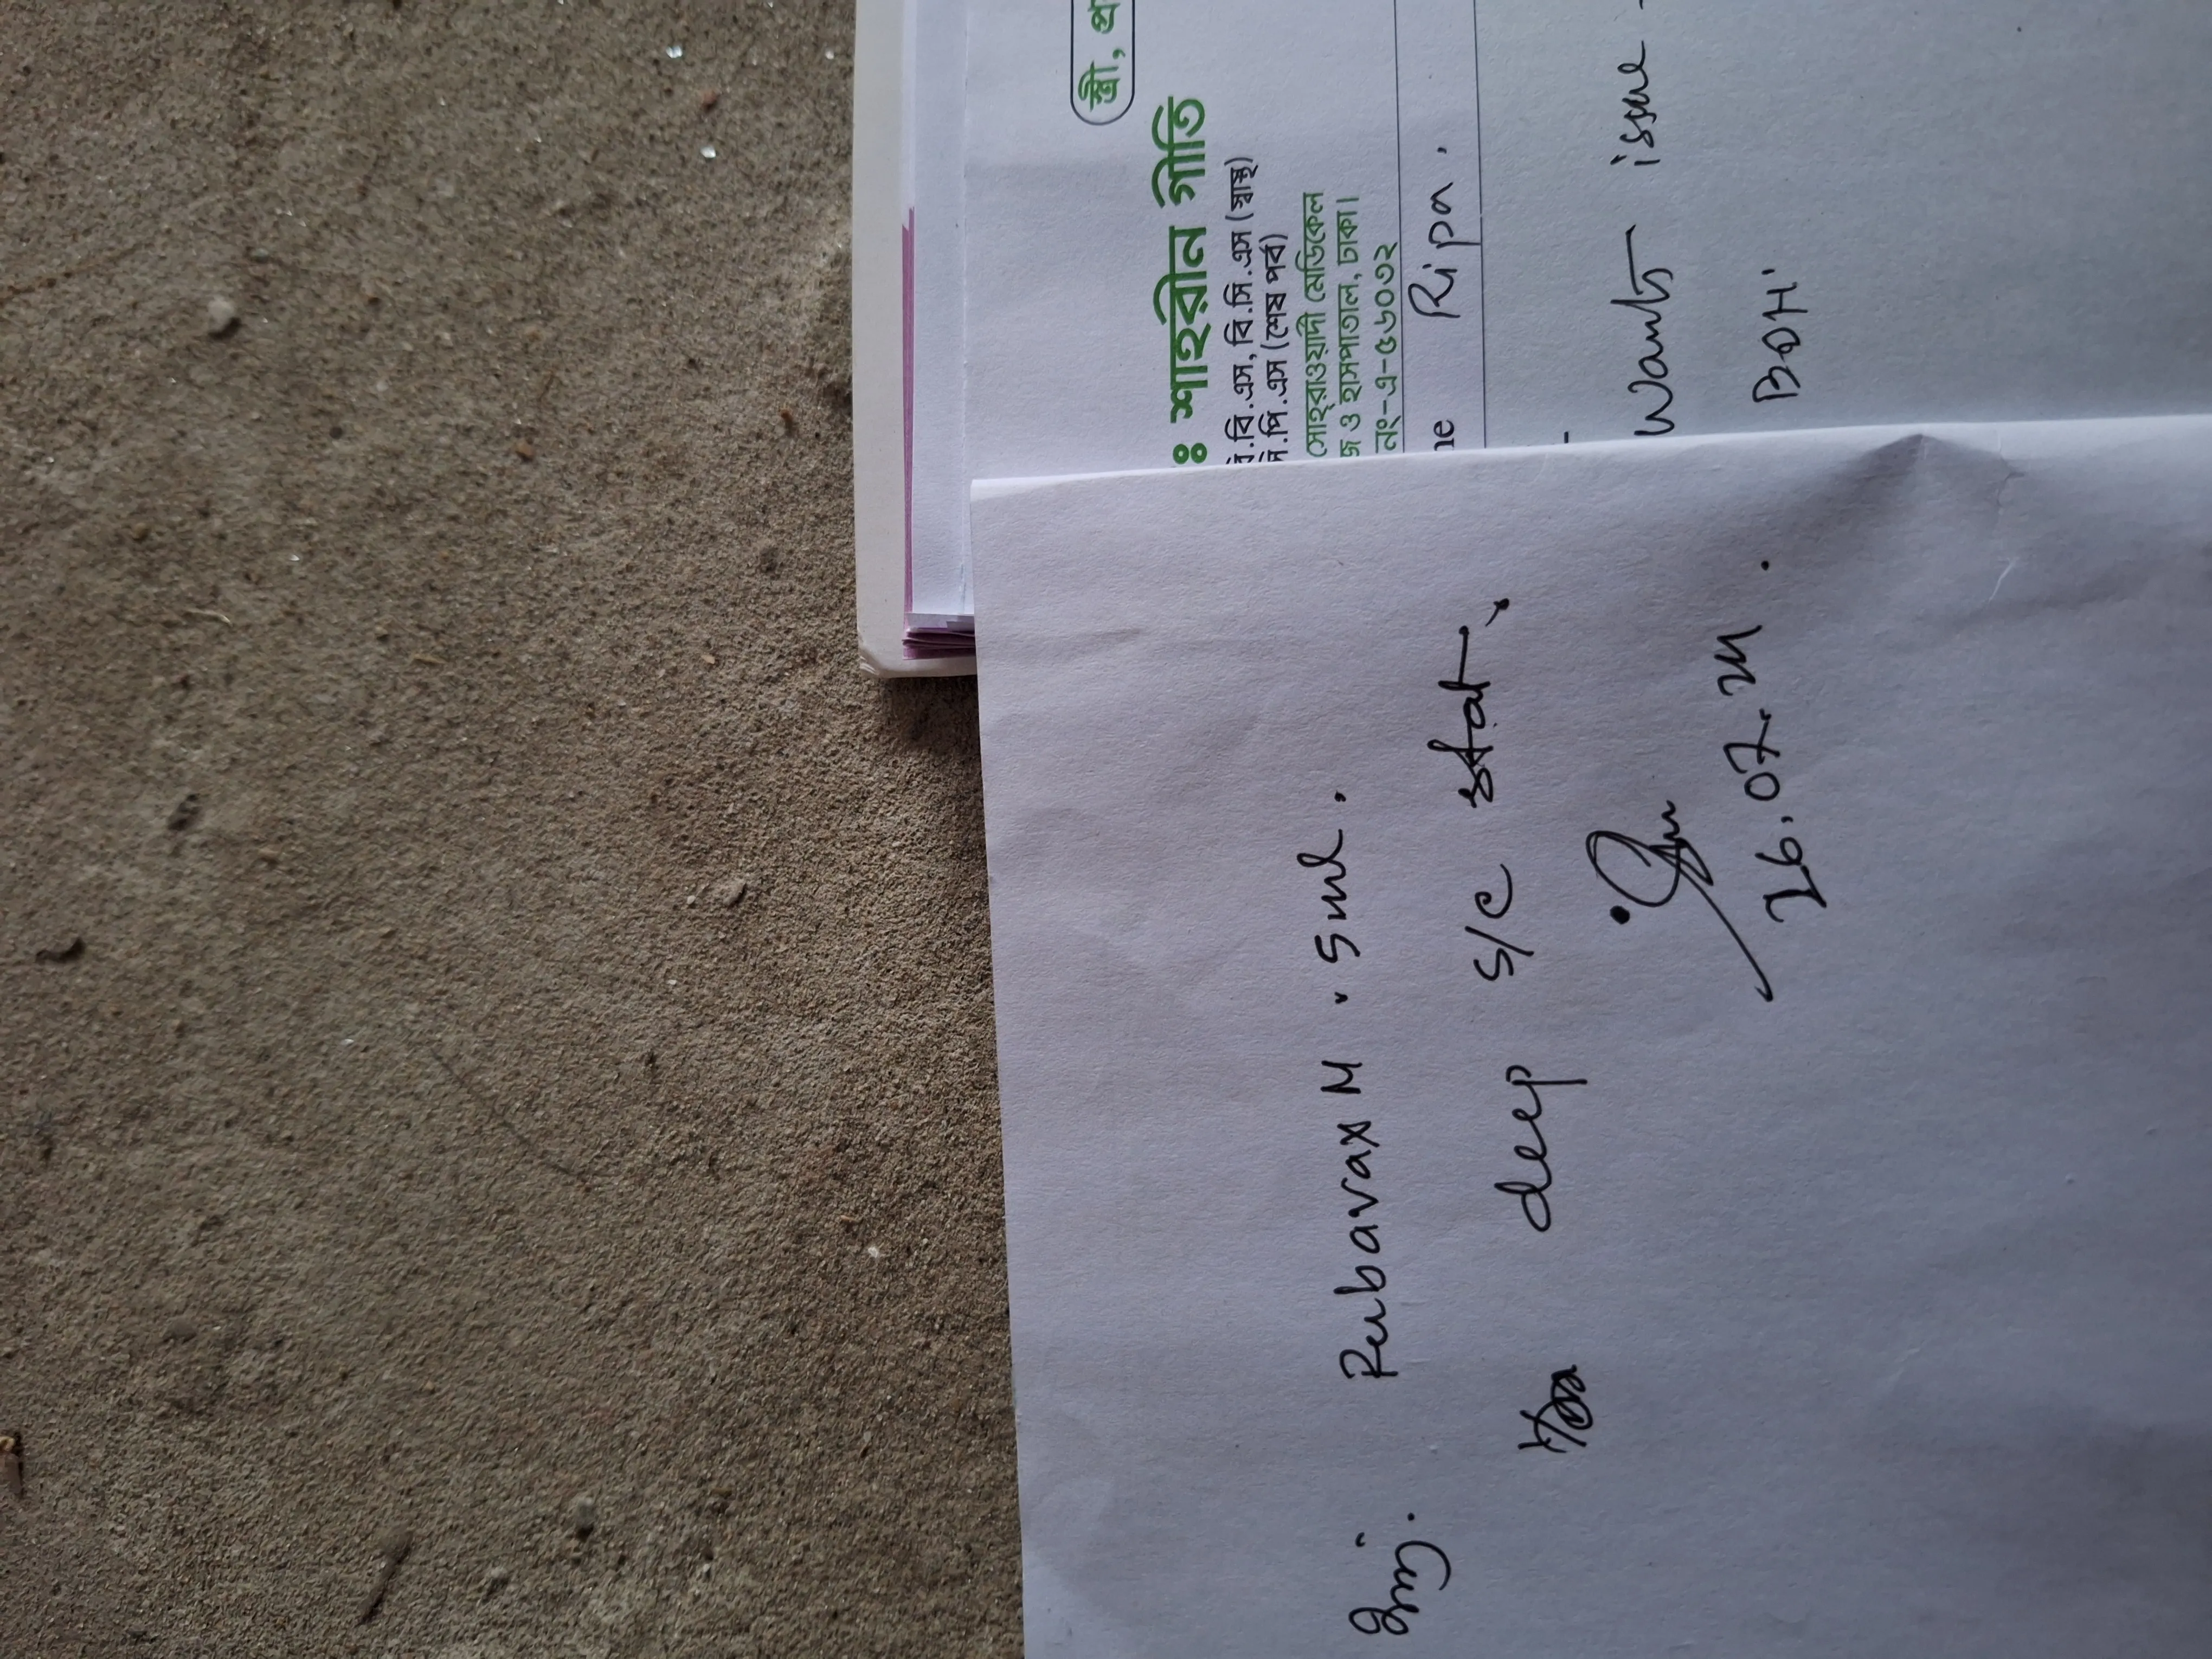 স্ত্রী, প্র
ঃ শাহরীন গীতি
.বি.এস, বি.সি.এস (স্বাস্থ্য)
.পি.এস (শেষ পর্ব)
সোহরাওয়ার্দী মেডিকেল
জ ও হাসপাতাল, ঢাকা।
নং-এ-৫৬০৩২
me Ripa.
Wants issue -
BOH'
Inj. Rubavax M . 5ml.
deep s/c stat
26.07.24.